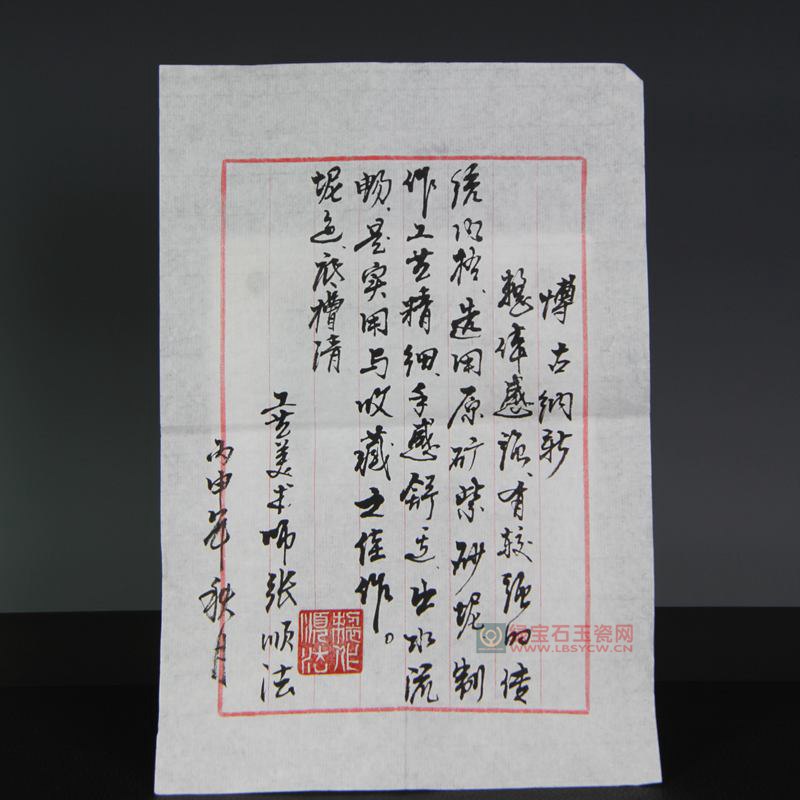 博古纳新
整体感强、有较强的传
统内格、选用原矿紫砂坭制
作工艺精细、手感舒适、出水流
畅、是实用与收藏之佳作。
坭色、底槽清
工艺美术师张顺法
丙申年秋月
制作
顺法
宝石玉瓷网
WWW.LBSYCW.CN